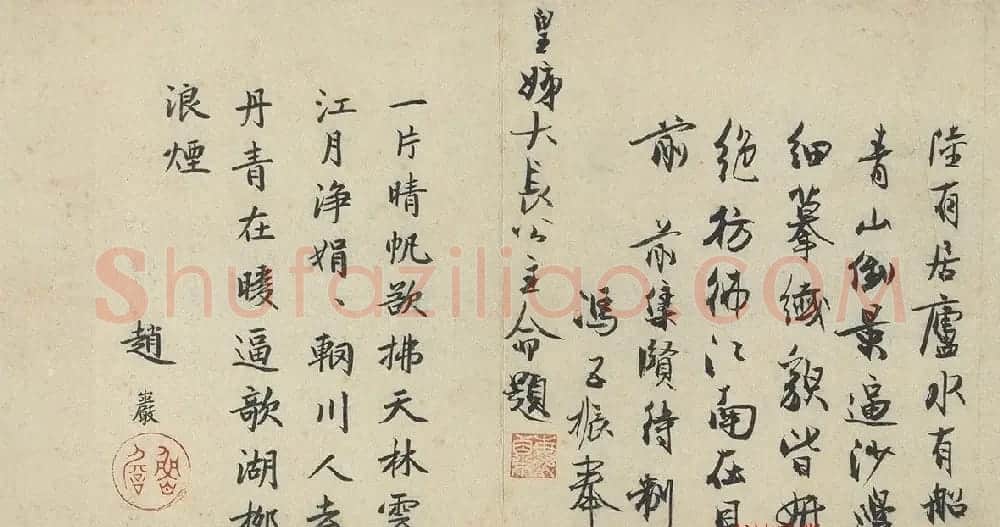 陸有居廬水有船
青山倒景逼沙邊
細摹纖貌皆妍
絕彷彿江南在目
前 前集賢待制
馮子振奉
皇姊大長公主命題
一片晴帆欲拂天林雲
江月淨娟、輞川人去
丹青在暖逼歌湖柳
浪煙
趙巖
Shufaziliao.COM